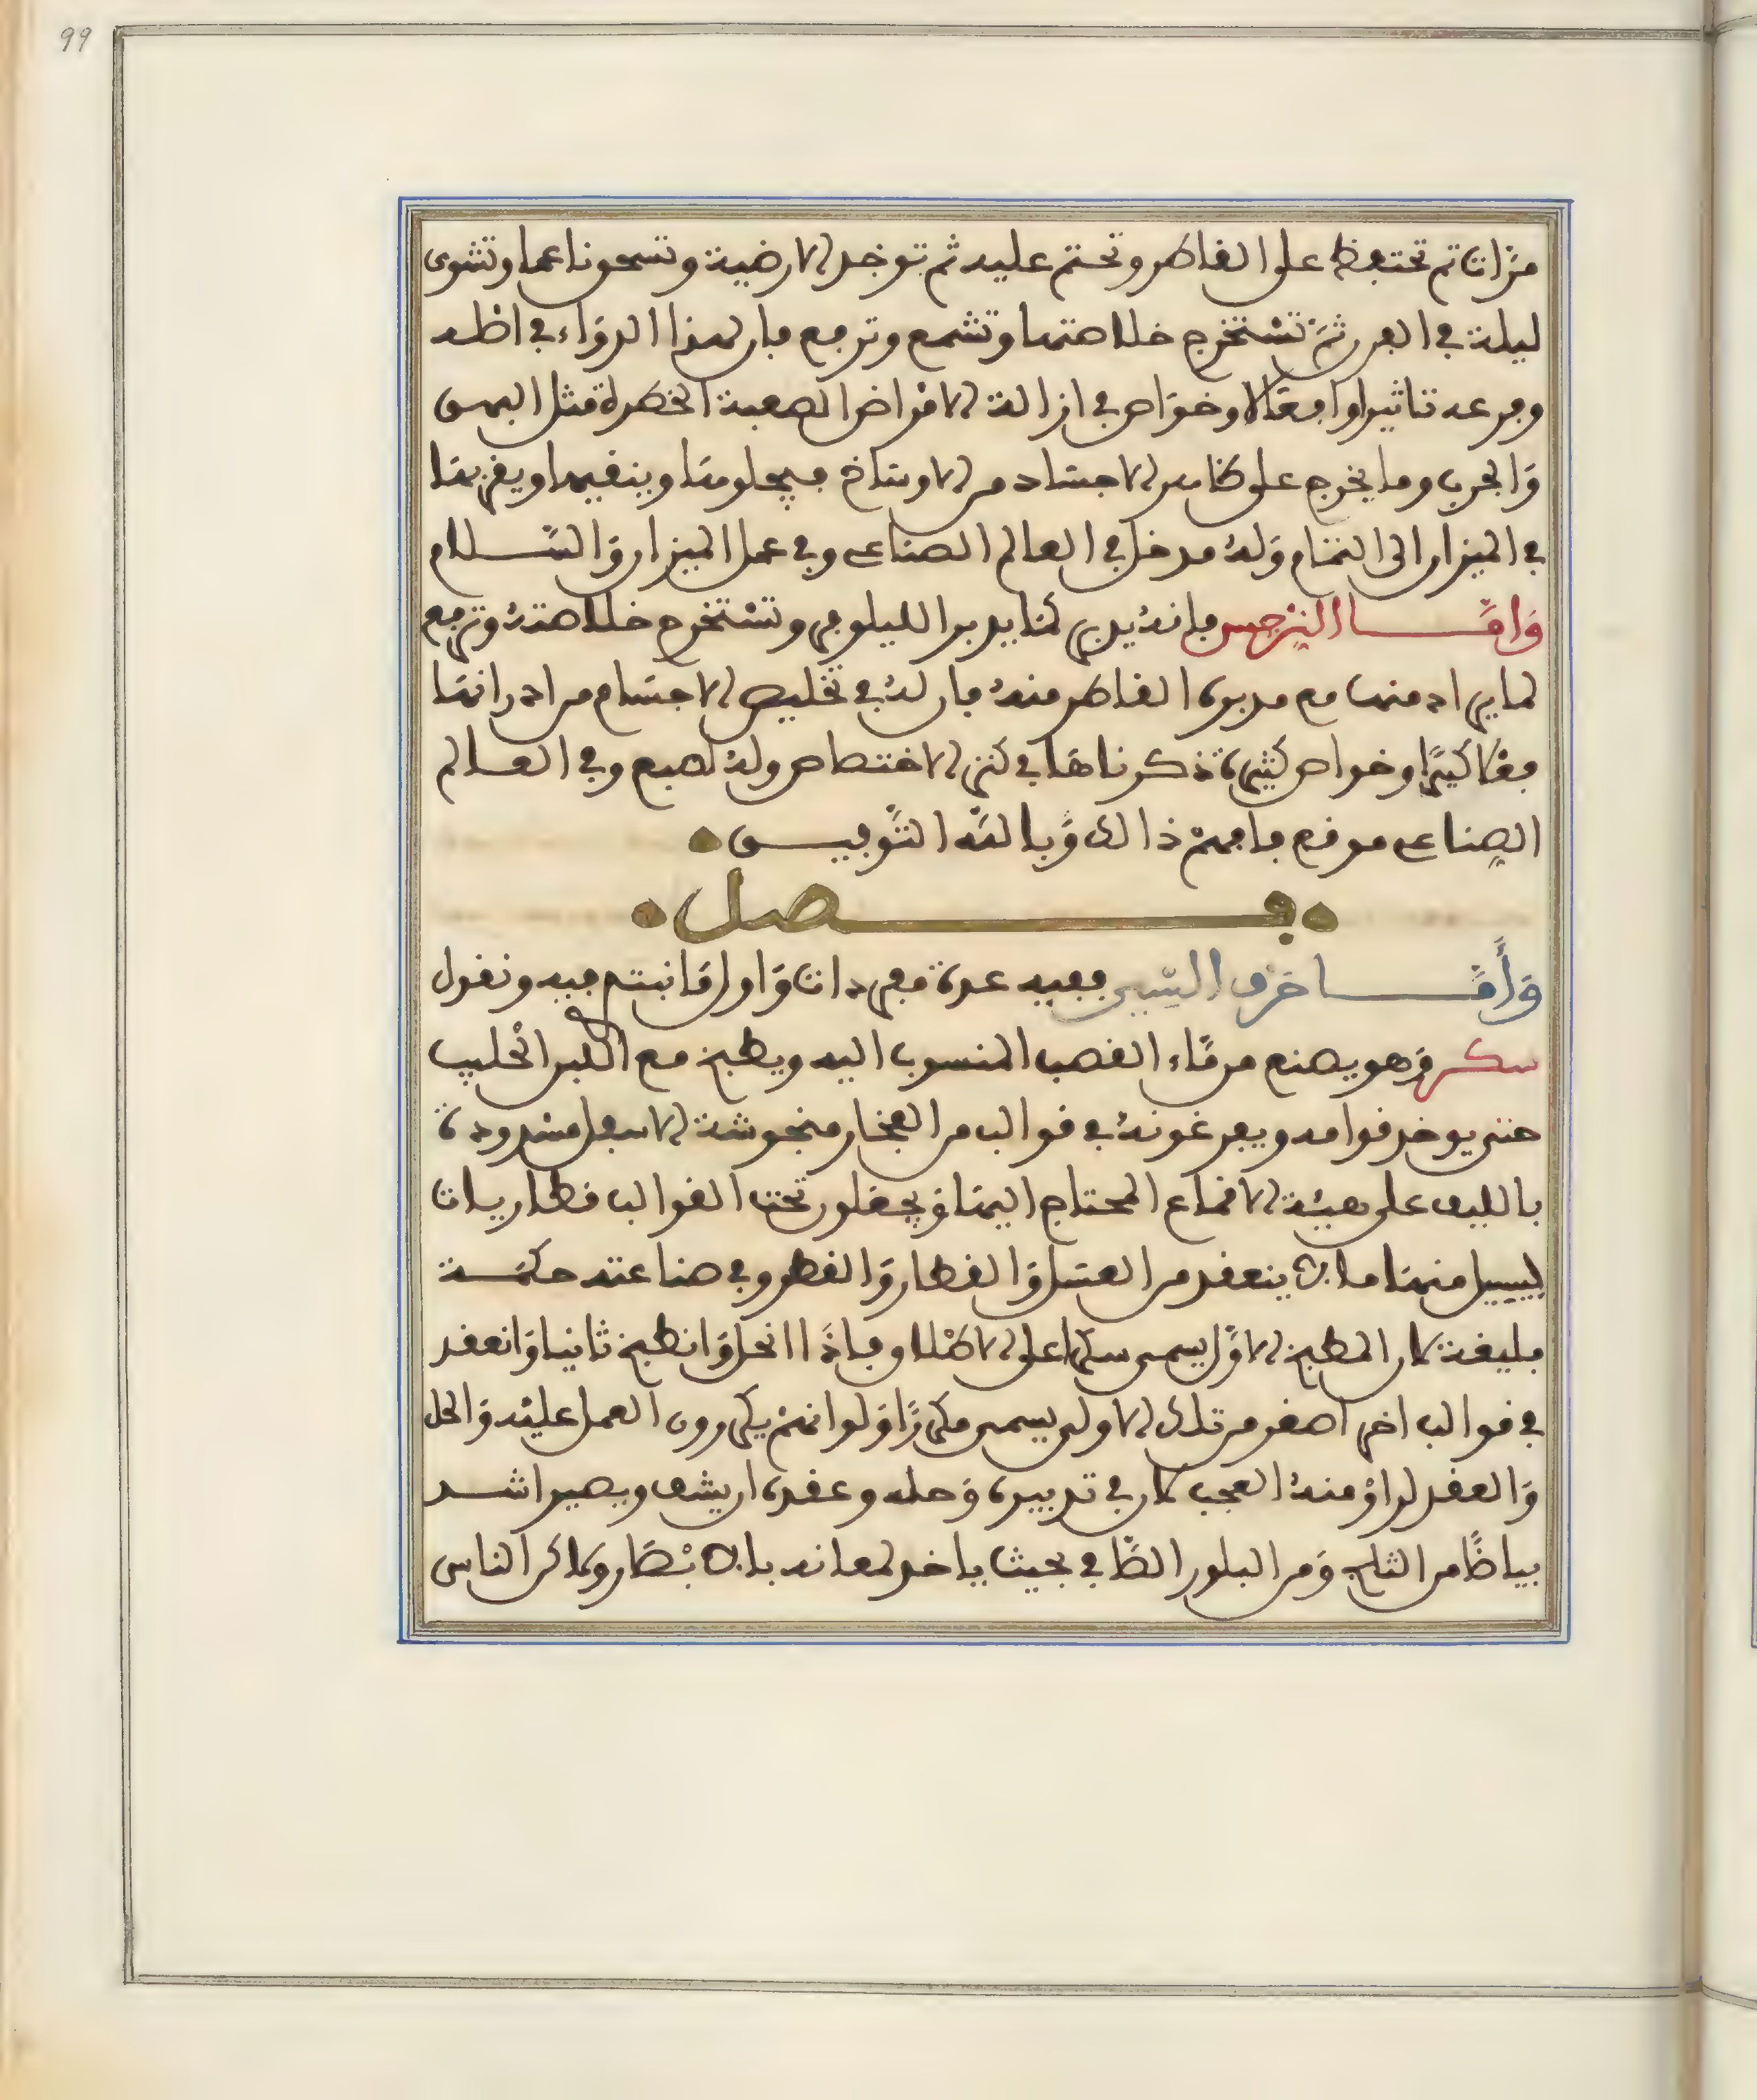 99
مرات ثم تحتفظ على القاطر وتختم عليه ثم توخد الارضية وتسحق ناعما وتشوى
ليلة في الفرن ثم تستخرج خلاصتها وتشمع وترجع فان لهذا الدواء في اصله
وفرعه تاثيرا وافعالا وخواص في ازالة الامراض الصعبة الخطرة مثل البهق
والجرب وما يخرج على ظاهر الاجساد من الاوساخ فيجلوها وينقيها ويقربها
في الميزان الى التمام وله مدخل في العالم الصناعي وفي عمل الميزان والسلام
واما النرجس فانه يدبر كما يدبر الليلوفر وتستخرج خلاصته وترجع
لما يراد منها مع مدبرة القاطر منه فان له في تخليص الاجسام من ادرانها
فعلا كبيرا وخواص كثيرة ذكرناها في كنز الاختصاص وله صبغ وفي العالم
الصناعي موقع فافهم ذالك وبالله التوفيق
فصل
واما حرف السين ففيه عدة مفردات واول ما نبتدئ فيه ونقول
سكر وهو يصنع من ماء القصب المنسوب اليه ويطبخ مع اللبن الحليب
حتى يوخد قوامه ويفرغونه في قوالب من الفخار منخوشة الاسفل مسدودة
بالليف على هيئة الاقماع المحتاج اليها ويجعلون تحت القوالب قطاريات
ليسيل منها ما لا ينعقد من العسل والقطار والقطر وفي صناعته حكمة
بليغة كان الطبخ الاول يسمى سكرا على الاطلاق فاذا انحل وانطبخ ثانيا وانعقد
في قوالب اخر اصغر من تلك الاولى يسمى مكررا ولو انهم يكررون العمل عليه والحل
والعقد لراو منه العجب كان في تدبيره وحله وعقده ان يشف ويصير اشد
بياضا من الثلج ومن البلور الصافي بحيث ياخد لمعانه بالابصار ولاكن الناس